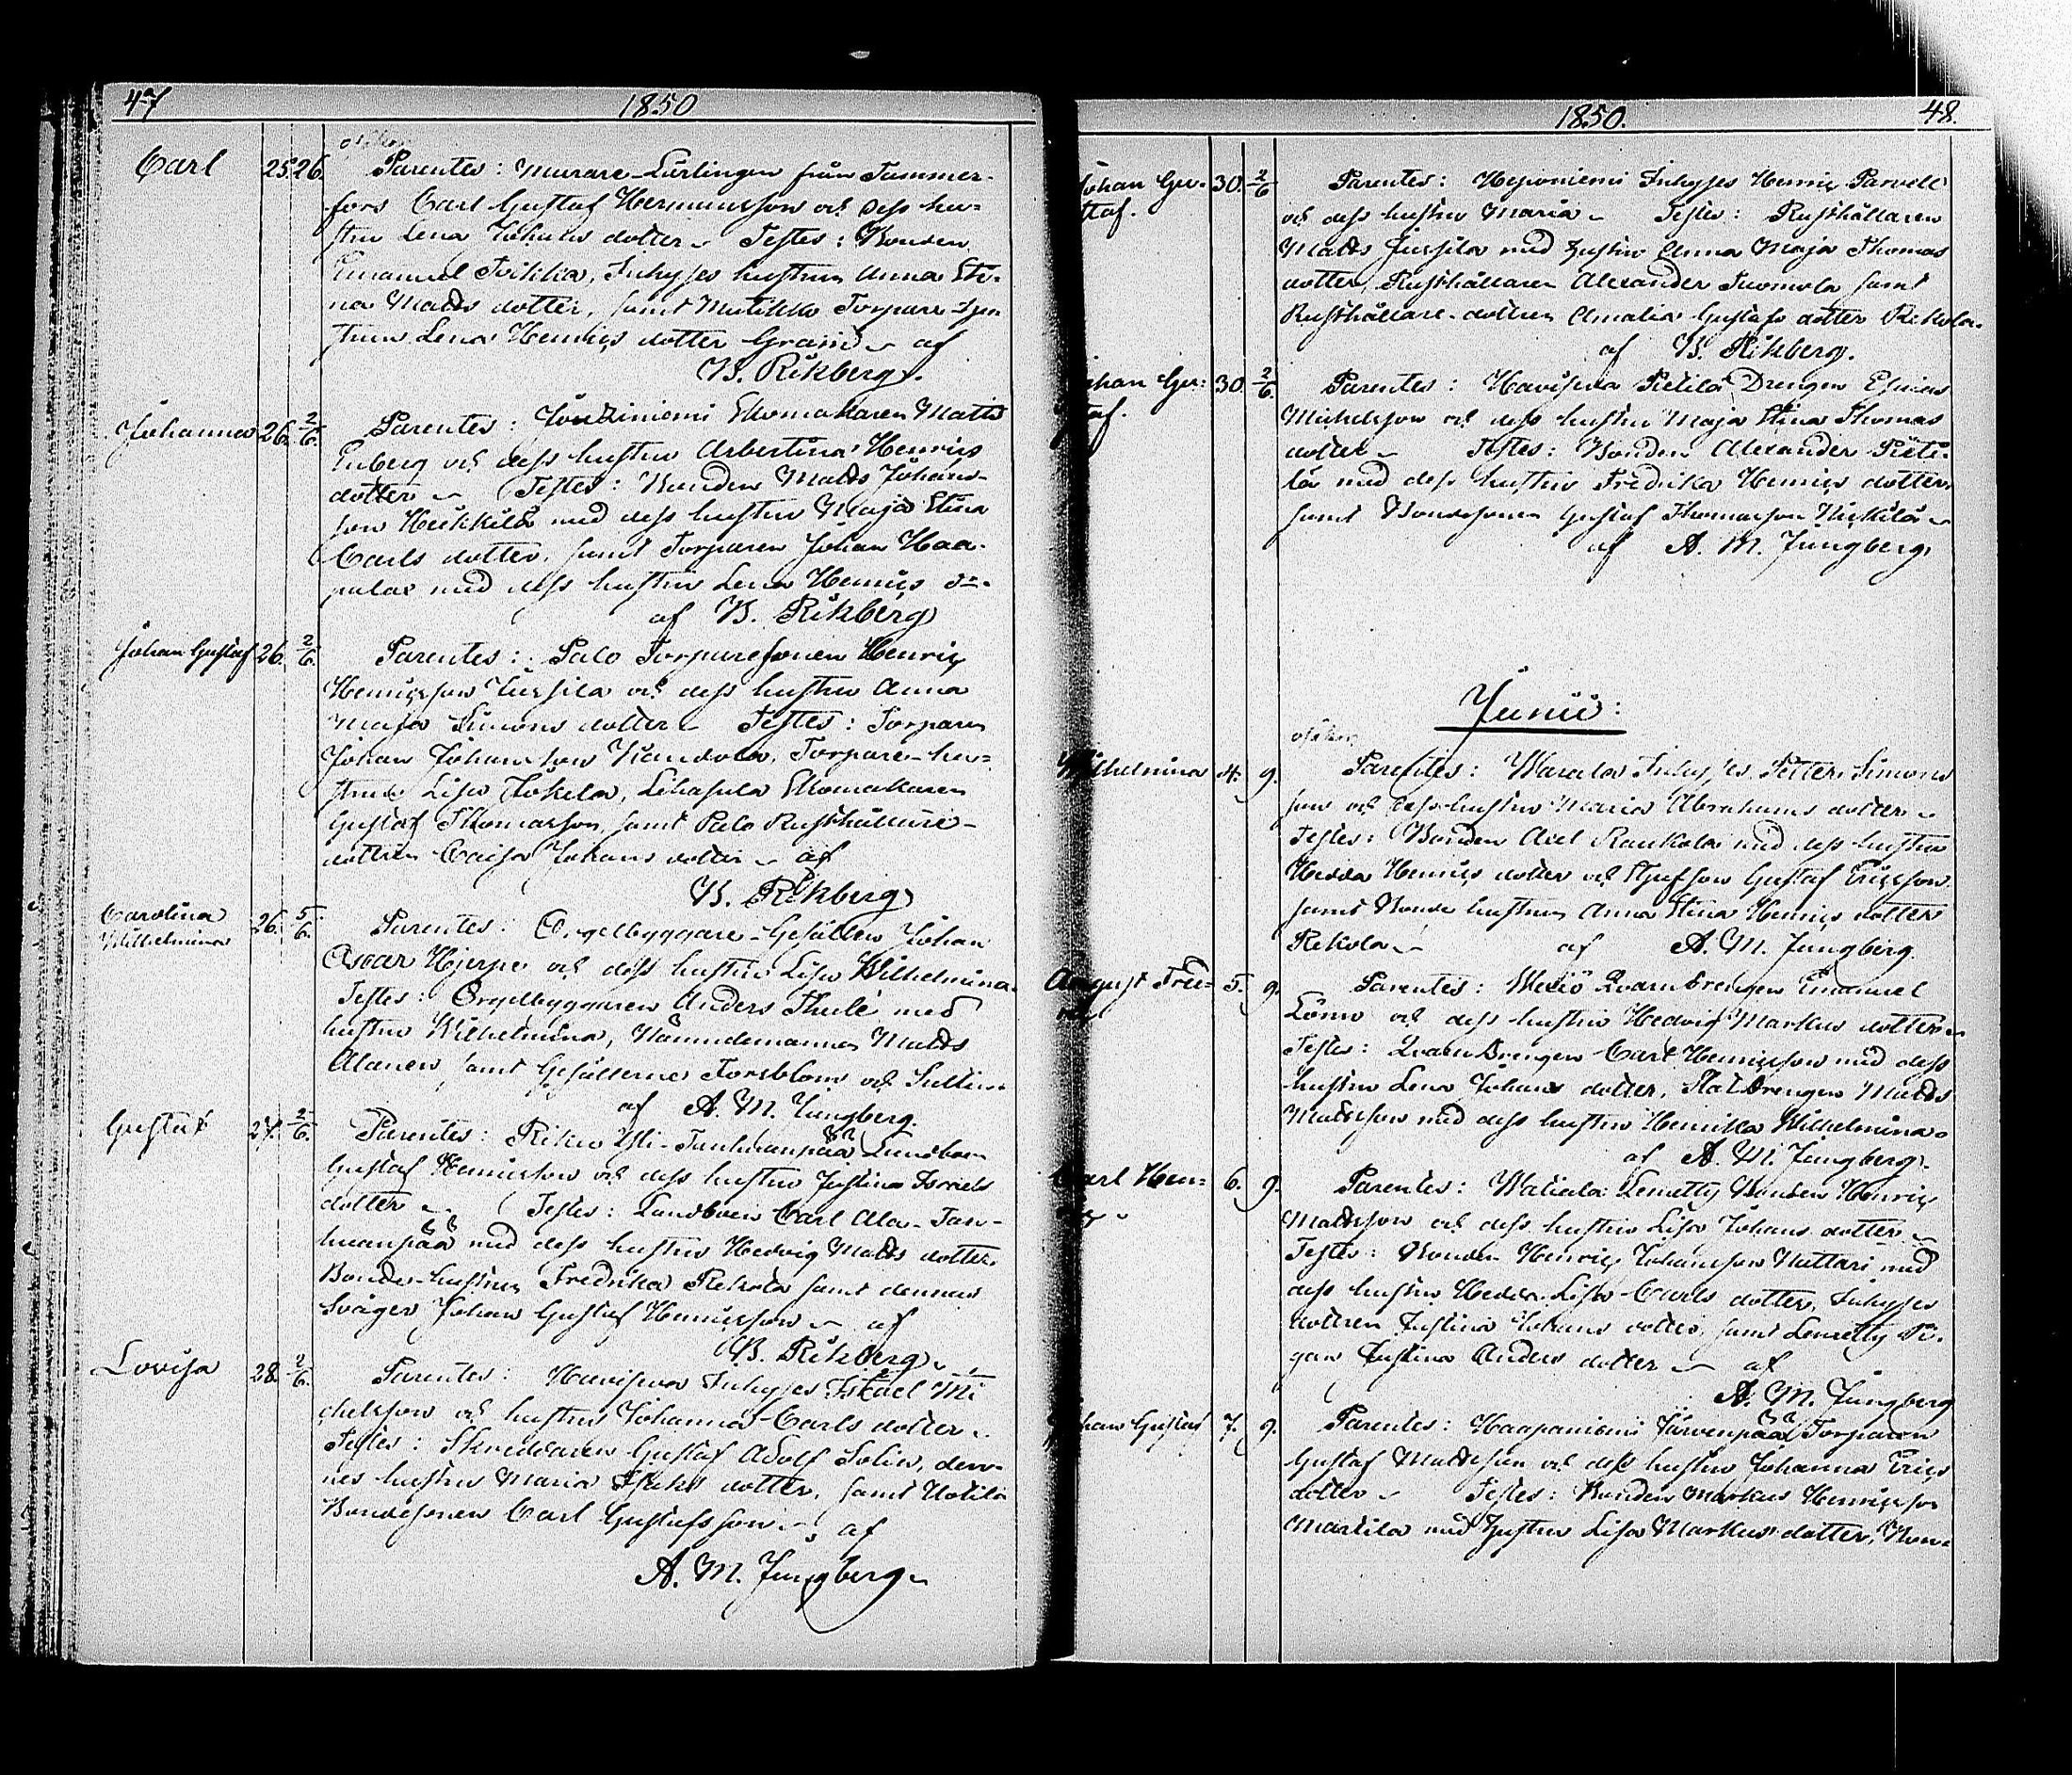 47 1850
Carl 25. 26. Parentes: Murare-Lärlingen från Tammer-
fors Carl Gustaf Hermansson och dess hu-
stru Lena Johans dotter. Testes: Bonden
Emanuel, Inhyses hustrun Anna Sti-
na Matts dotter, samt Torpare-hu-
strun Lena Henrics dotter af
B. Rikberg.
Johannes 26. 2/6. Parentes: Skomakaren Matts
Enberg och dess hustru Albertina Henrics
dotter. Testes: Bonden Matts Johans-
son Heikkilä med dess hustru Maja Stina
Carls dotter, samt Torparen Johan Haa-
palax med dess hustru Lena Henrics dr.
af B. Rikberg
Johan Gustaf 26. 2/6. Parentes: Palo Torparesonen Henric
Henricsson Jussila och dess hustru Anna
Maja Simons dotter. Testes: Torparen
Johan Johansson, Torpare-hu-
strun Lisa Jokela, Lihasula Skomakaren
Gustaf Thomasson, samt Palo Rusthållare-
dottren Caisa Johans dotter af
B. Rikberg
Carolina
Wilhelmina 26. 5/6. Parentes: Orgelbyggare-Gesällen Johan
Oscar Hjerpe och dess hustru Lisa Wilhelmina.
Testes: Orgelbyggaren Anders Thulé med
hustru Wilhelmina, Nämndemannen Matts
Alanen, samt Gesällerne Forsblom och
af A. M. Jungberg.
Gustaf 27. 2/6. Parentes: Riku Yli-Tanhuanpää Landboen
Gustaf Henricsson och dess hustru Justina Israels
dotter. Testes: Landboen Carl Ala-Tan-
huanpää med dess hustru Hedvig Matts dotter,
Bonde-hustrun Fredrika Rekola samt dennes
Svåger Johan Gustaf Henricsson af
B. Rikberg
Lovisa 28. 2/6. Parentes: Havisevа Inhyses Israel Mi-
chelsson och hustrun Johanna Carls dotter.
Testes: Skreddaren Gustaf Adolf Solin, den-
nes hustru Maria Isaks dotter, samt Uotila
Bondesonen Carl Gustafsson af
A. M. Jungberg
1850. 48.
Johan Gus- 30. 2/6 Parentes: Heponiemi Inhyses Henric Parvell
taf. och dess hustru Maria. Testes: Rusthållaren
Matts Jussila med hustru Anna Maja Thomas
dotter, Rusthållaren Alexander Tuomola samt
Rusthållare-dottren Amalia Gustafs dotter Rekola.
af B. Rikberg.
Johan Gus- 30. 2/6. Parentes: Havisevа Pietilä Drengen Esaias
taf. Michelsson och dess hustru Maja Stina Thomas
dotter. Testes: Bonden Alexander Pieti-
lä med dess hustru Fredrika Henrics dotter,
samt Bondesonen Gustaf Thomasson
af A. M. Jungberg
Junii:
Wilhelmina 4. 9. Parentes: Warala Inhyses Petter Simons
son och dess hustru Maria Abrahams dotter.
Testes: Bonden Axel Raukola med dess hustru
Hedda Henrics dotter och Styfson Gustaf Ericsson
samt Bonde hustrun Anna Stina Henrics dotter
Rekola. af A. M. Jungberg.
August Fred- 5. 9. Parentes: Qvarndrengen Emanuel
ric Lönn och dess hustru Hedvig Markus dotter.
Testes: Qvarndrengen Carl Henricsson med dess
hustru Lena Johans dotter, Staldrengen Matts
Mattsson med dess hustru Henrika Wilhelmina.
af A. M. Jungberg.
Carl Hen- 6. 9. Parentes: Watiala Lemetty Bonden Henric
ric Mattsson och dess hustru Lisa Johans dotter.
Testes: Bonden Henric Johansson Huttari med
dess hustru Hedda Lisa Carls dotter, Inhyses
dottren Justina Johans dotter, samt Lemetty Pi-
gan Justina Anders dotter af
A. M. Jungberg
Johan Gustaf 7. 9. Parentes: Haapaniemi Järvenpää Torparen
Gustaf Mattsson och dess hustru Johanna Erics
dotter. Testes: Bonden Markus Henricsson
Markila med hustru Lisa Markus dotter, Bon-